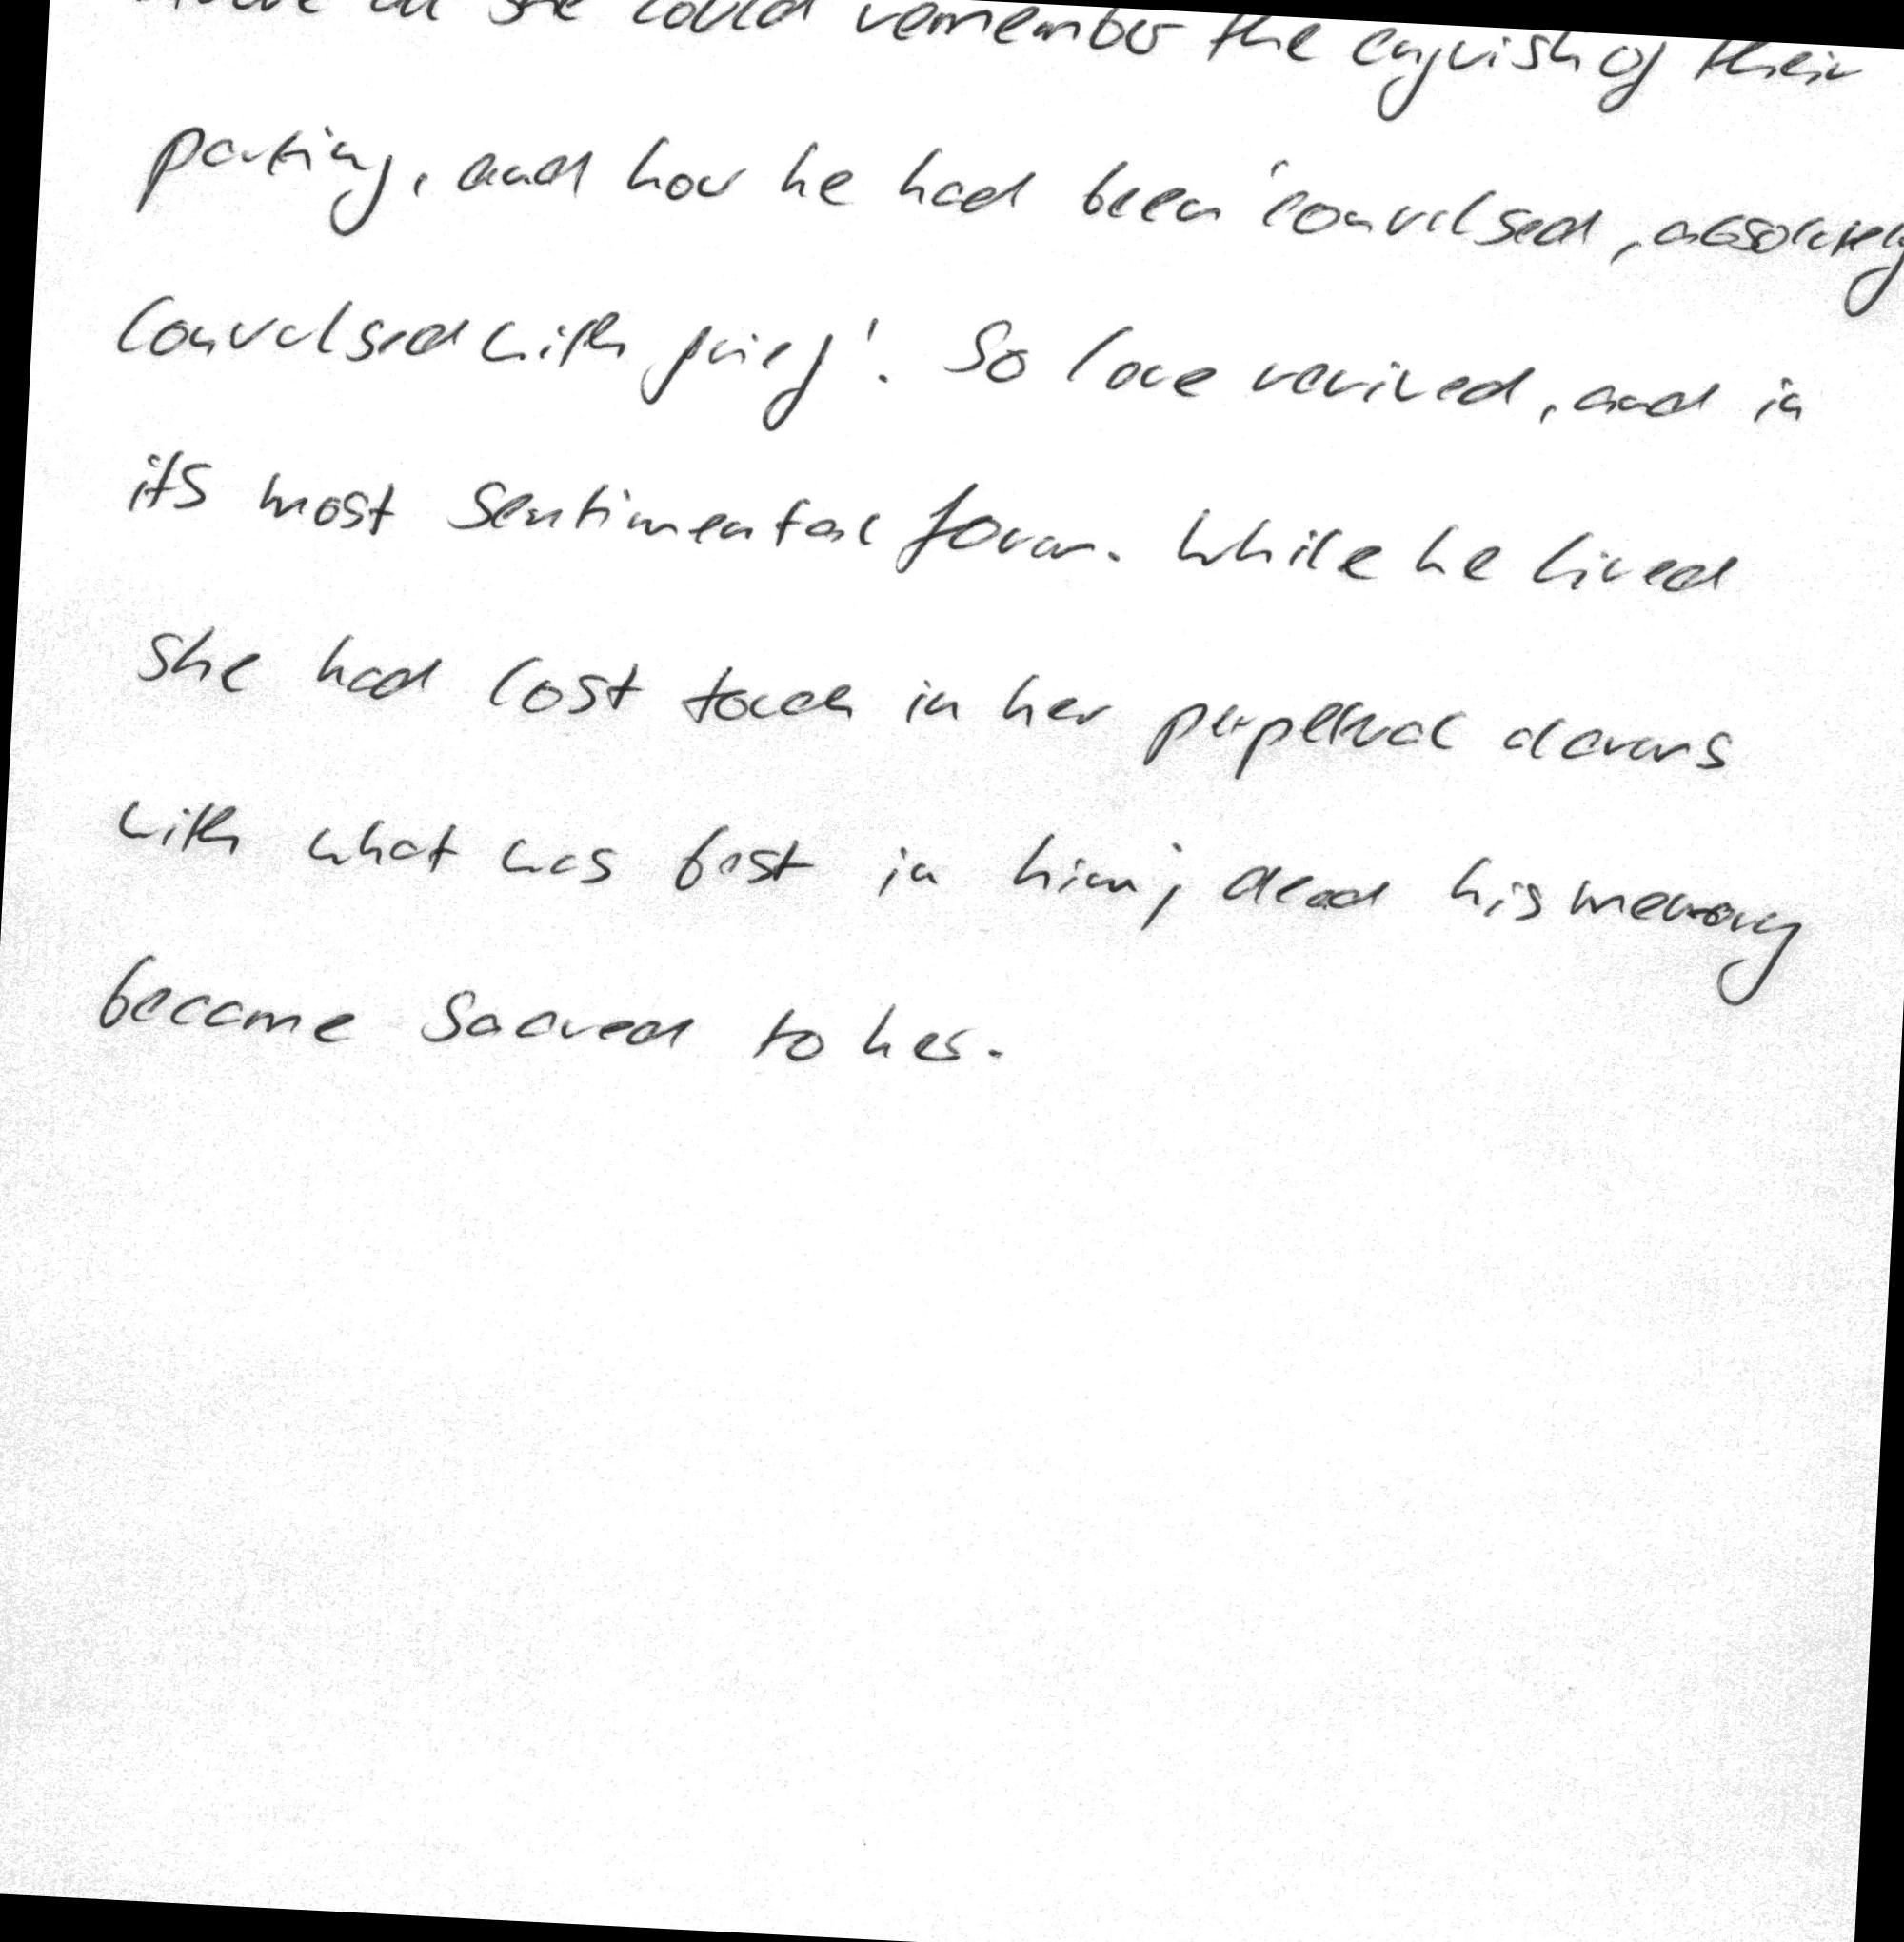 all she could remember the anguish of their
parting, and how he had been 'convulsed, absolutely
convulsed with grief'. So love revived, and in
its most sentimental form. While he lived
she had lost touch in her perpetual alarms
with what was best in him; dead his memory
became sacred to her.